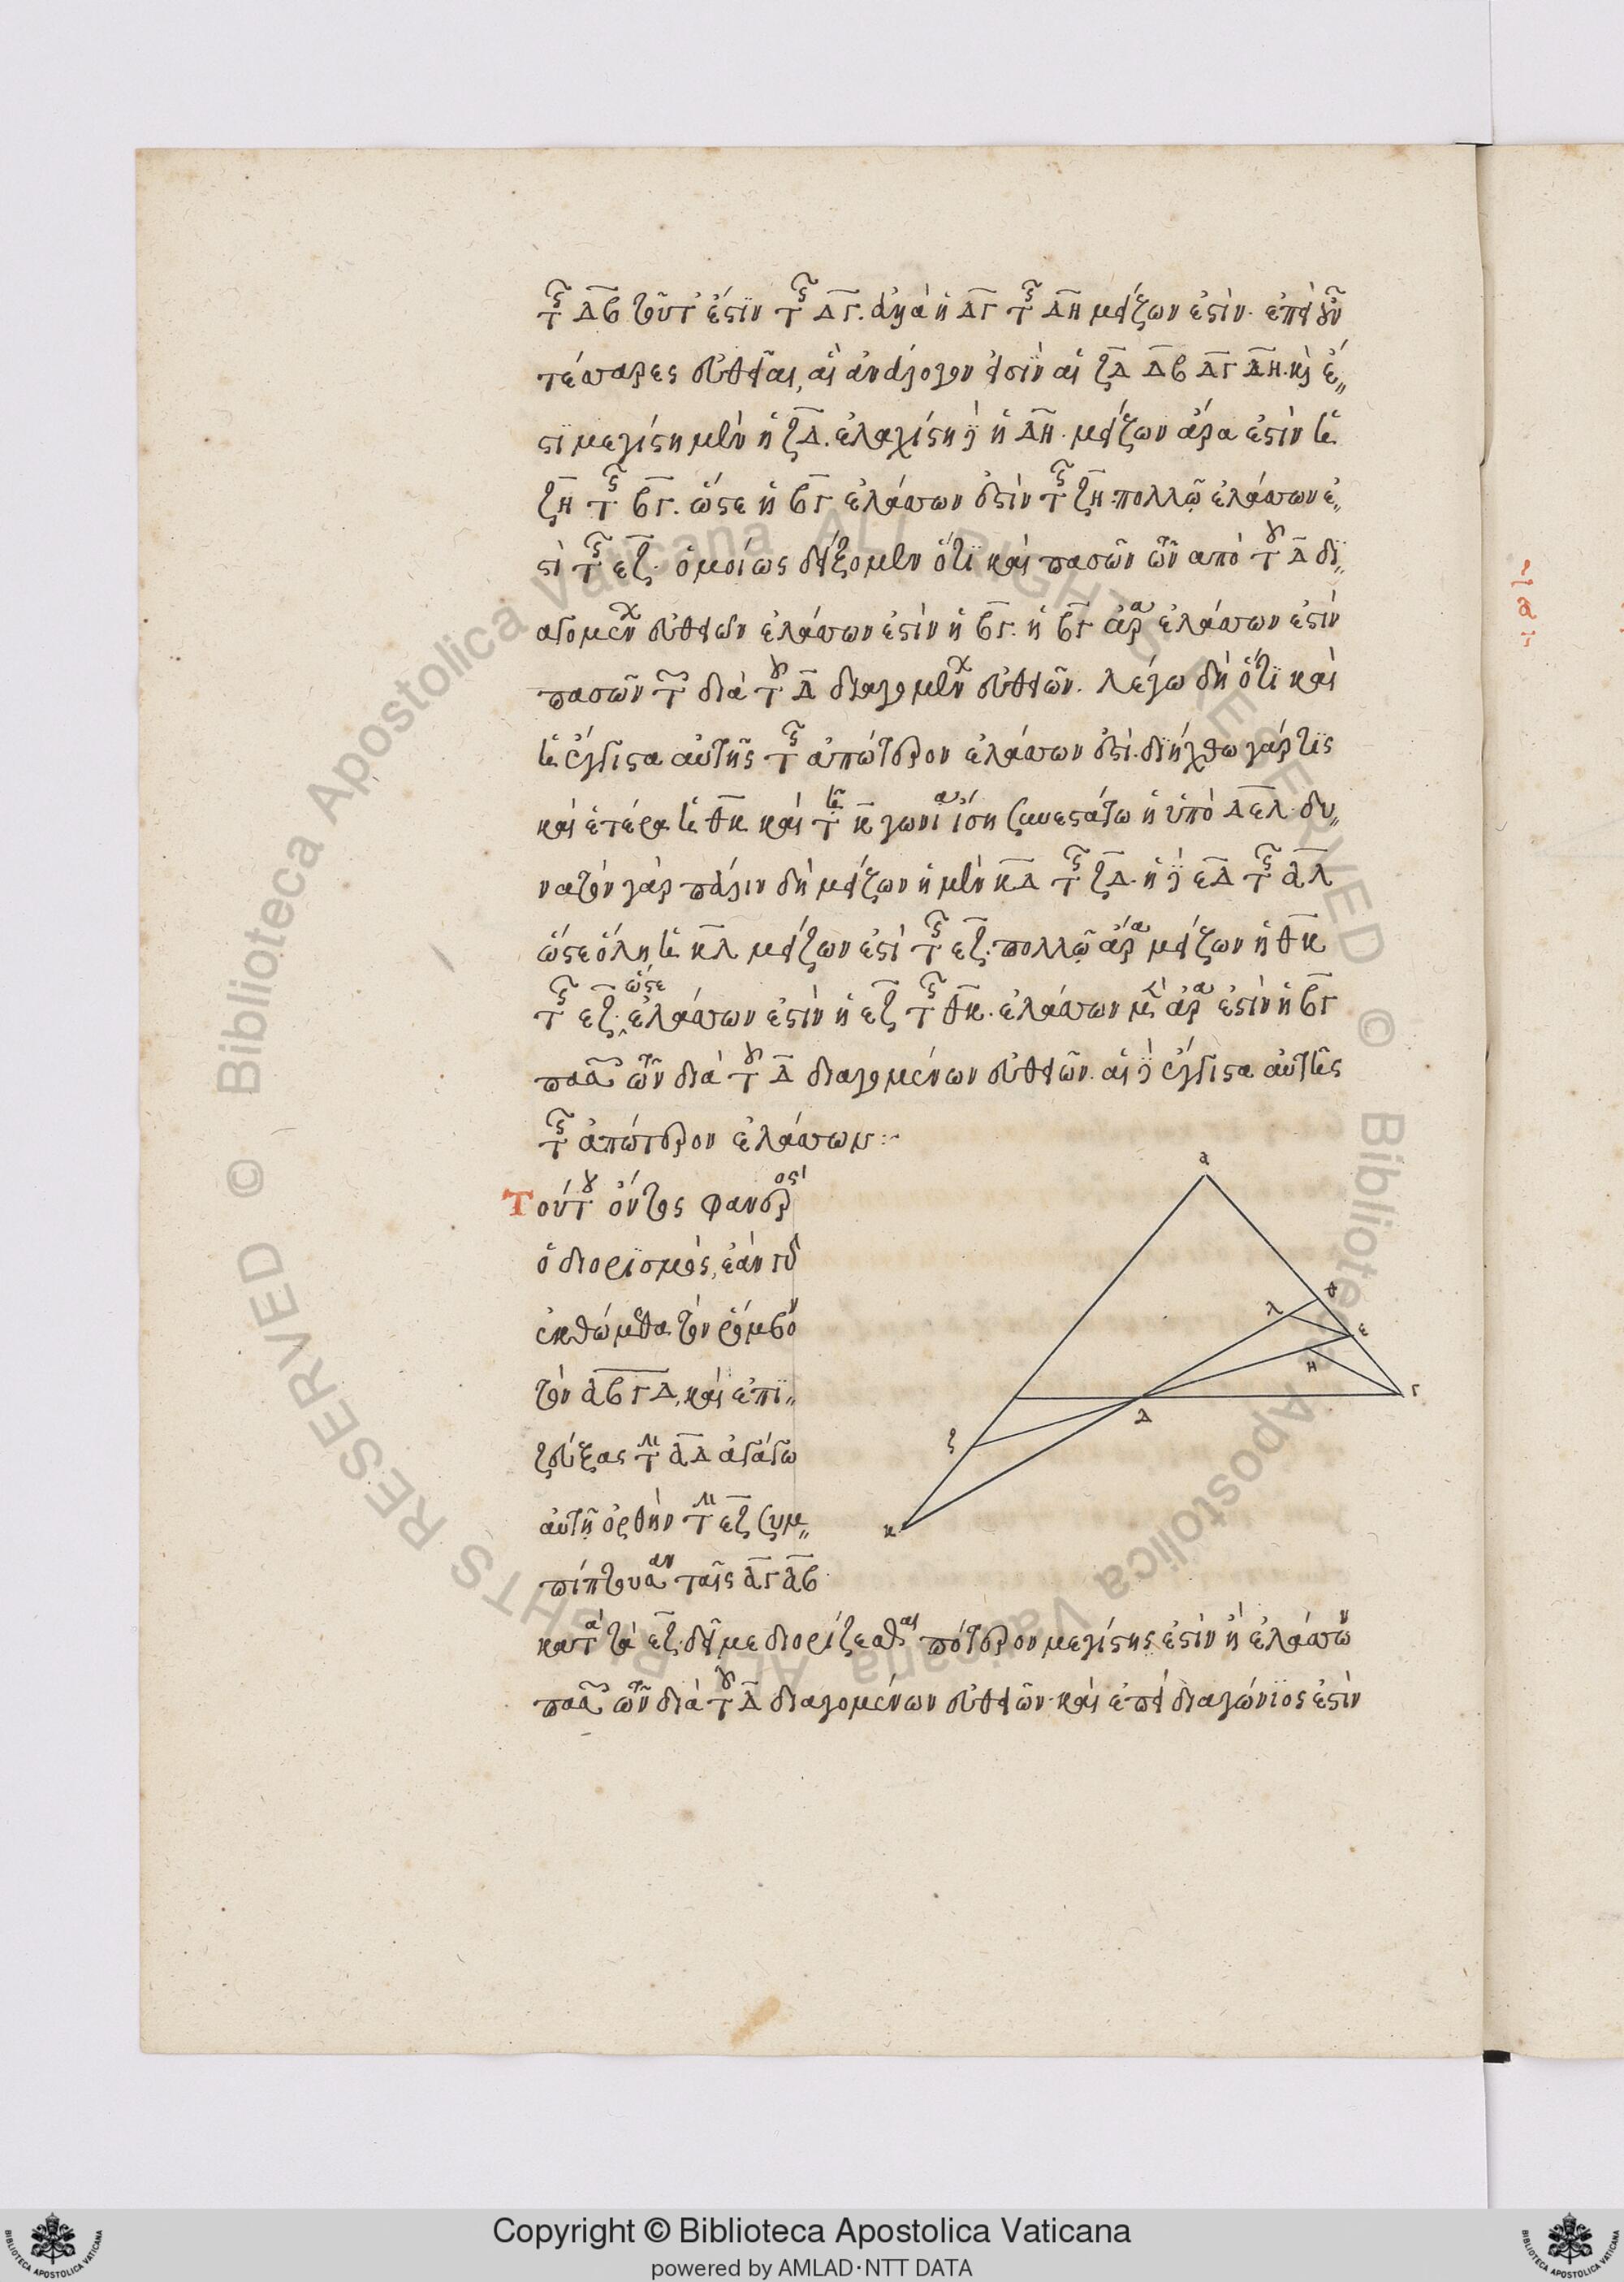 τῆς ΔΒ τουτέστιν τῆς ΔΓ. ἀλλὰ ἡ ΔΓ τῆς ΔΗ μείζων ἐστίν. ἐπεὶ οὖν
τέσσαρες εὐθεῖαι, αἳ ἀνάλογον εἰσὶν αἱ ΖΔ ΔΒ ΔΓ ΔΗ. καὶ ἔ〃
στι μεγίστη μὲν ἡ ΖΔ. ἐλαχίστη δὲ ἡ ΔΗ. μείζων ἄρα ἐστὶν ἡ
ΖΗ τῆς ΒΓ. ὥστε ἡ ΒΓ ἐλάσσων ἐστὶν τῆς ΖΗ. πολλῷ ἐλάσσων ἐ〃
στὶ τῆς ΕΖ. ὁμοίως δείξομεν ὅτι καὶ πασῶν τῶν ἀπὸ τοῦ Δ δι〃
αγομένων εὐθειῶν ἐλάσσων ἐστὶν ἡ ΒΓ. ἡ ΒΓ ἄρα ἐλάσσων ἐστὶν
πασῶν τῶν διὰ τοῦ Δ διαγομένων εὐθειῶν. λέγω δὴ ὅτι καὶ
ἡ ἔγγιστα αὐτῆς τῆς ἀπώτερον ἐλάσσων ἐστί. διήχθω γάρ τις
καὶ ἑτέρα ἡ ΘΚ καὶ τῇ Κ γωνίᾳ ἴση συνεστάτω ἡ ὑπὸ ΔΕΛ. δυ〃
νατὸν γὰρ πάλιν δὴ μείζων ἡ μὲν ΚΔ τῆς ΖΔ. ἡ δὲ ΕΔ τῆς ΔΛ
ὥστε ὅλη ἡ ΚΛ μείζων ἐστὶ τῆς ΕΖ. πολλῷ ἄρα μείζων ἡ ΘΚ
τῆς ΕΖ. ὥστε ἐλάσσων ἐστὶν ἡ ΕΖ τῆς ΘΚ. ἐλάσσων μὲν ἄρα ἐστὶν ἡ ΒΓ
πασῶν τῶν διὰ τοῦ Δ διαγομένων εὐθειῶν. αἱεὶ δὲ ἔγγιστα αὐτῆς
τῆς ἀπώτερον ἐλάσσων:
Τούτου ὄντος φανερός ἐστι
ὁ διορισμὸς, ἐὰν γὰρ
ἐκθώμεθα τὸν ῥόμβον
τὸν ΑΒΓΔ, καὶ ἐπι〃
ζεύξας τὴν ΑΔ ἀγάγω
αὐτῇ ὀρθὴν τὴν ΕΖ συμ〃
πίπτουσαν ταῖς ΑΓ ΑΒ
κατὰ τὰ ΕΖ. δεῖ με διορίζεσθαι πότερον μεγίστης ἐστὶν ἢ ἐλάσσων
πασῶν τῶν διὰ τοῦ Δ διαγομένων εὐθειῶν. καὶ ἐπεὶ διαγώνιος ἐστιν
α
θ
λ
ε
η
γ
Δ
ζ
κ
© Biblioteca Apostolica Vaticana ALL RIGHTS RESERVED © Biblioteca Apostolica Vaticana ALL RIGHTS RESERVED
Copyright © Biblioteca Apostolica Vaticana
powered by AMLAD·NTT DATA
BIBLIOTECA APOSTOLICA VATICANA
BIBLIOTECA APOSTOLICA VATICANA